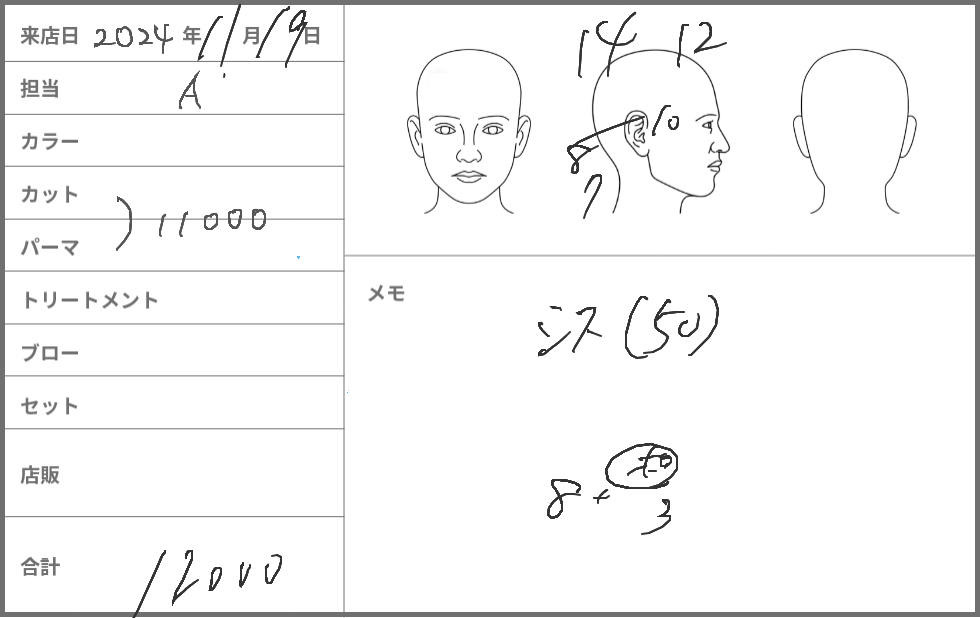 来店日 2024年11月19日
担当 A
カラー
カット
パーマ
) 11000
トリートメント
ブロー
セット
店販
合計 12000
14 12
10
8
7
メモ
シス (50)
8 +
3